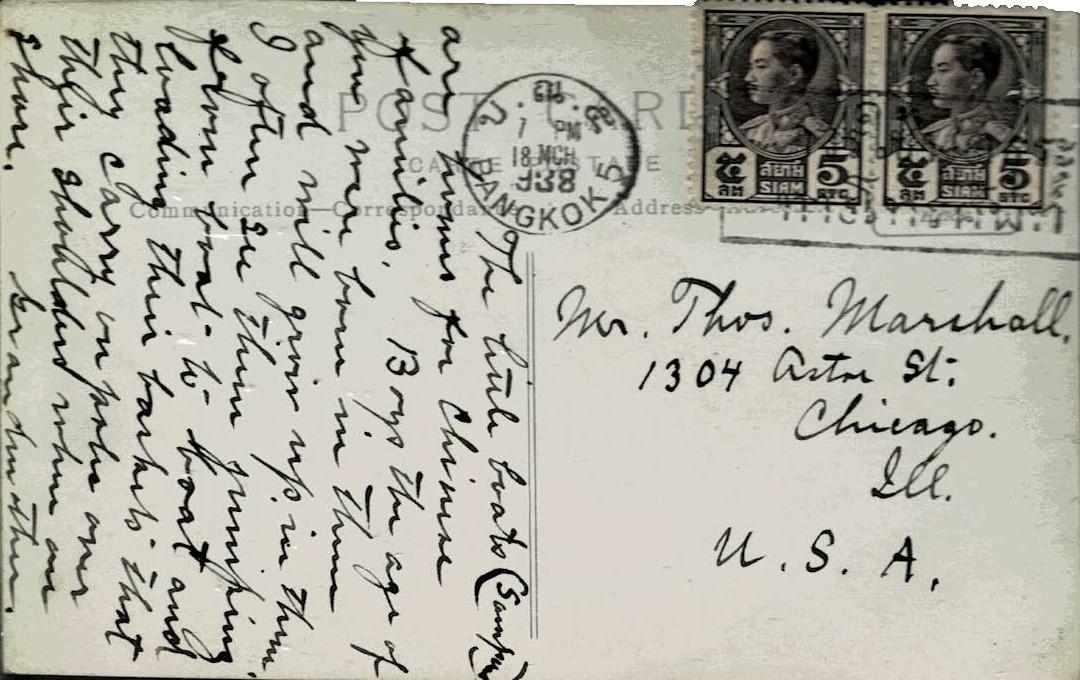 POST CARD
CARTE POSTALE
Communication—Correspondance
Address
7 PM
18 MCH
1938
BANGKOK 5
๕ สยาม 5
สต SIAM STG
๕ สยาม 5
สต SIAM STG
The little boats (Sampan)
are homes for Chinese
families. Boys the age of
you were born in them
and will grow up in them.
I often see them jumping
from boat to boat and
loading their baskets that
they carry on poles over
their shoulders when on
shore.
Grandmother.
Mr. Thos. Marshall.
1304 Astor St.
Chicago.
Ill.
U. S. A.